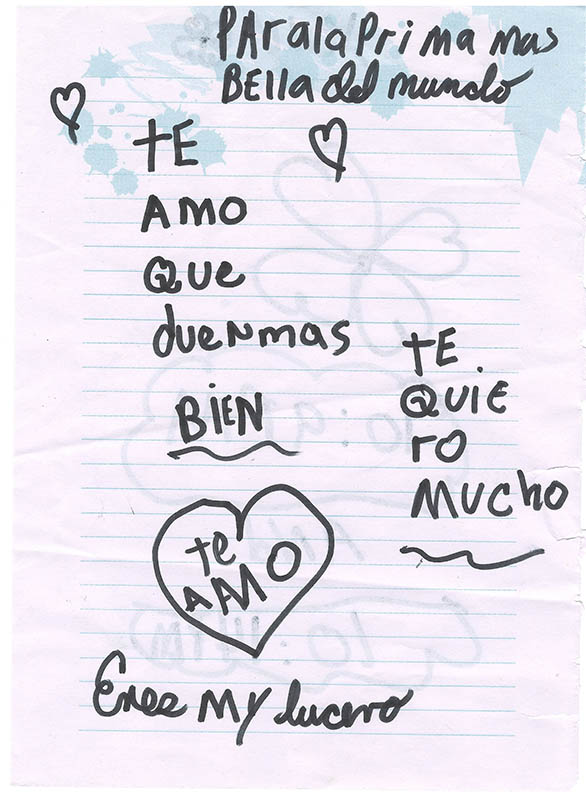 PArala Prima mas
BElla del mundo
tE
AMO
Que
duenmas
BIEN
tE
QUIE
ro
MUCHO
te
AMO
Eres MY lucero